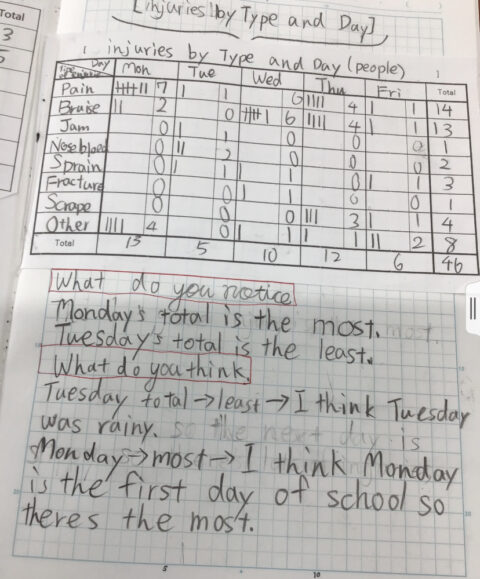 Total
3
5
[Injuries by Type and Day]
injuries by Type and Day (people)
Day Mon Tue Wed Thu Fri Total
Pain 7 1 4 1 14
Bruise 2 0 6 4 1 13
Jam 0 1 0 0 0 1
Nosebleed 0 2 0 0 0 2
Sprain 0 1 1 0 1 3
Fracture 0 0 1 0 0 1
Scrape 0 0 0 3 1 4
Other 4 0 1 1 2 8
Total 13 5 10 12 6 46
What do you notice
Monday's total is the most.
Tuesday's total is the least.
What do you think.
Tuesday total→least→I think Tuesday
was rainy.
Monday→most→I think Monday
is the first day of school so
theres the most.
5
10